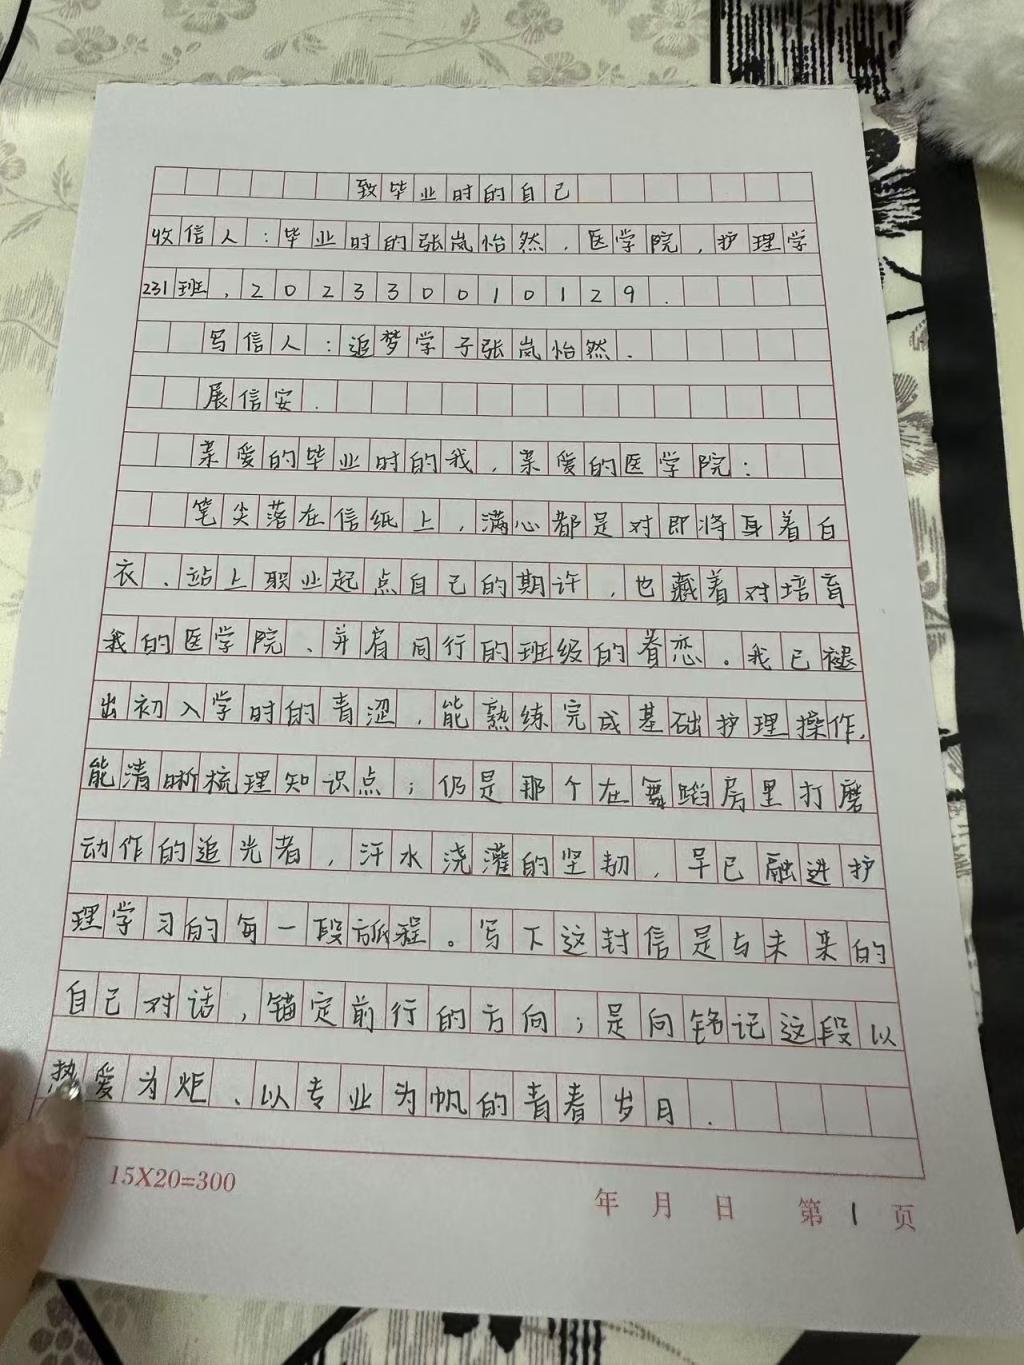 致毕业时的自己
收信人：毕业时的张岚怡然，医学院，护理学
231班，202330010129.
写信人：追梦学子张岚怡然.
展信安.
亲爱的毕业时的我，亲爱的医学院：
笔尖落在信纸上，满心都是对即将身着白
衣、站上职业起点自己的期许，也藏着对培育
我的医学院、并肩同行的班级的眷恋。我已褪
出初入学时的青涩，能熟练完成基础护理操作，
能清晰梳理知识点；仍是那个在舞蹈房里打磨
动作的追光者，汗水浇灌的坚韧，早已融进护
理学习的每一段旅程。写下这封信是与未来的
自己对话，锚定前行的方向；是向铭记这段以
热爱为炬、以专业为帆的青春岁月.
15X20=300
年 月 日 第 1 页